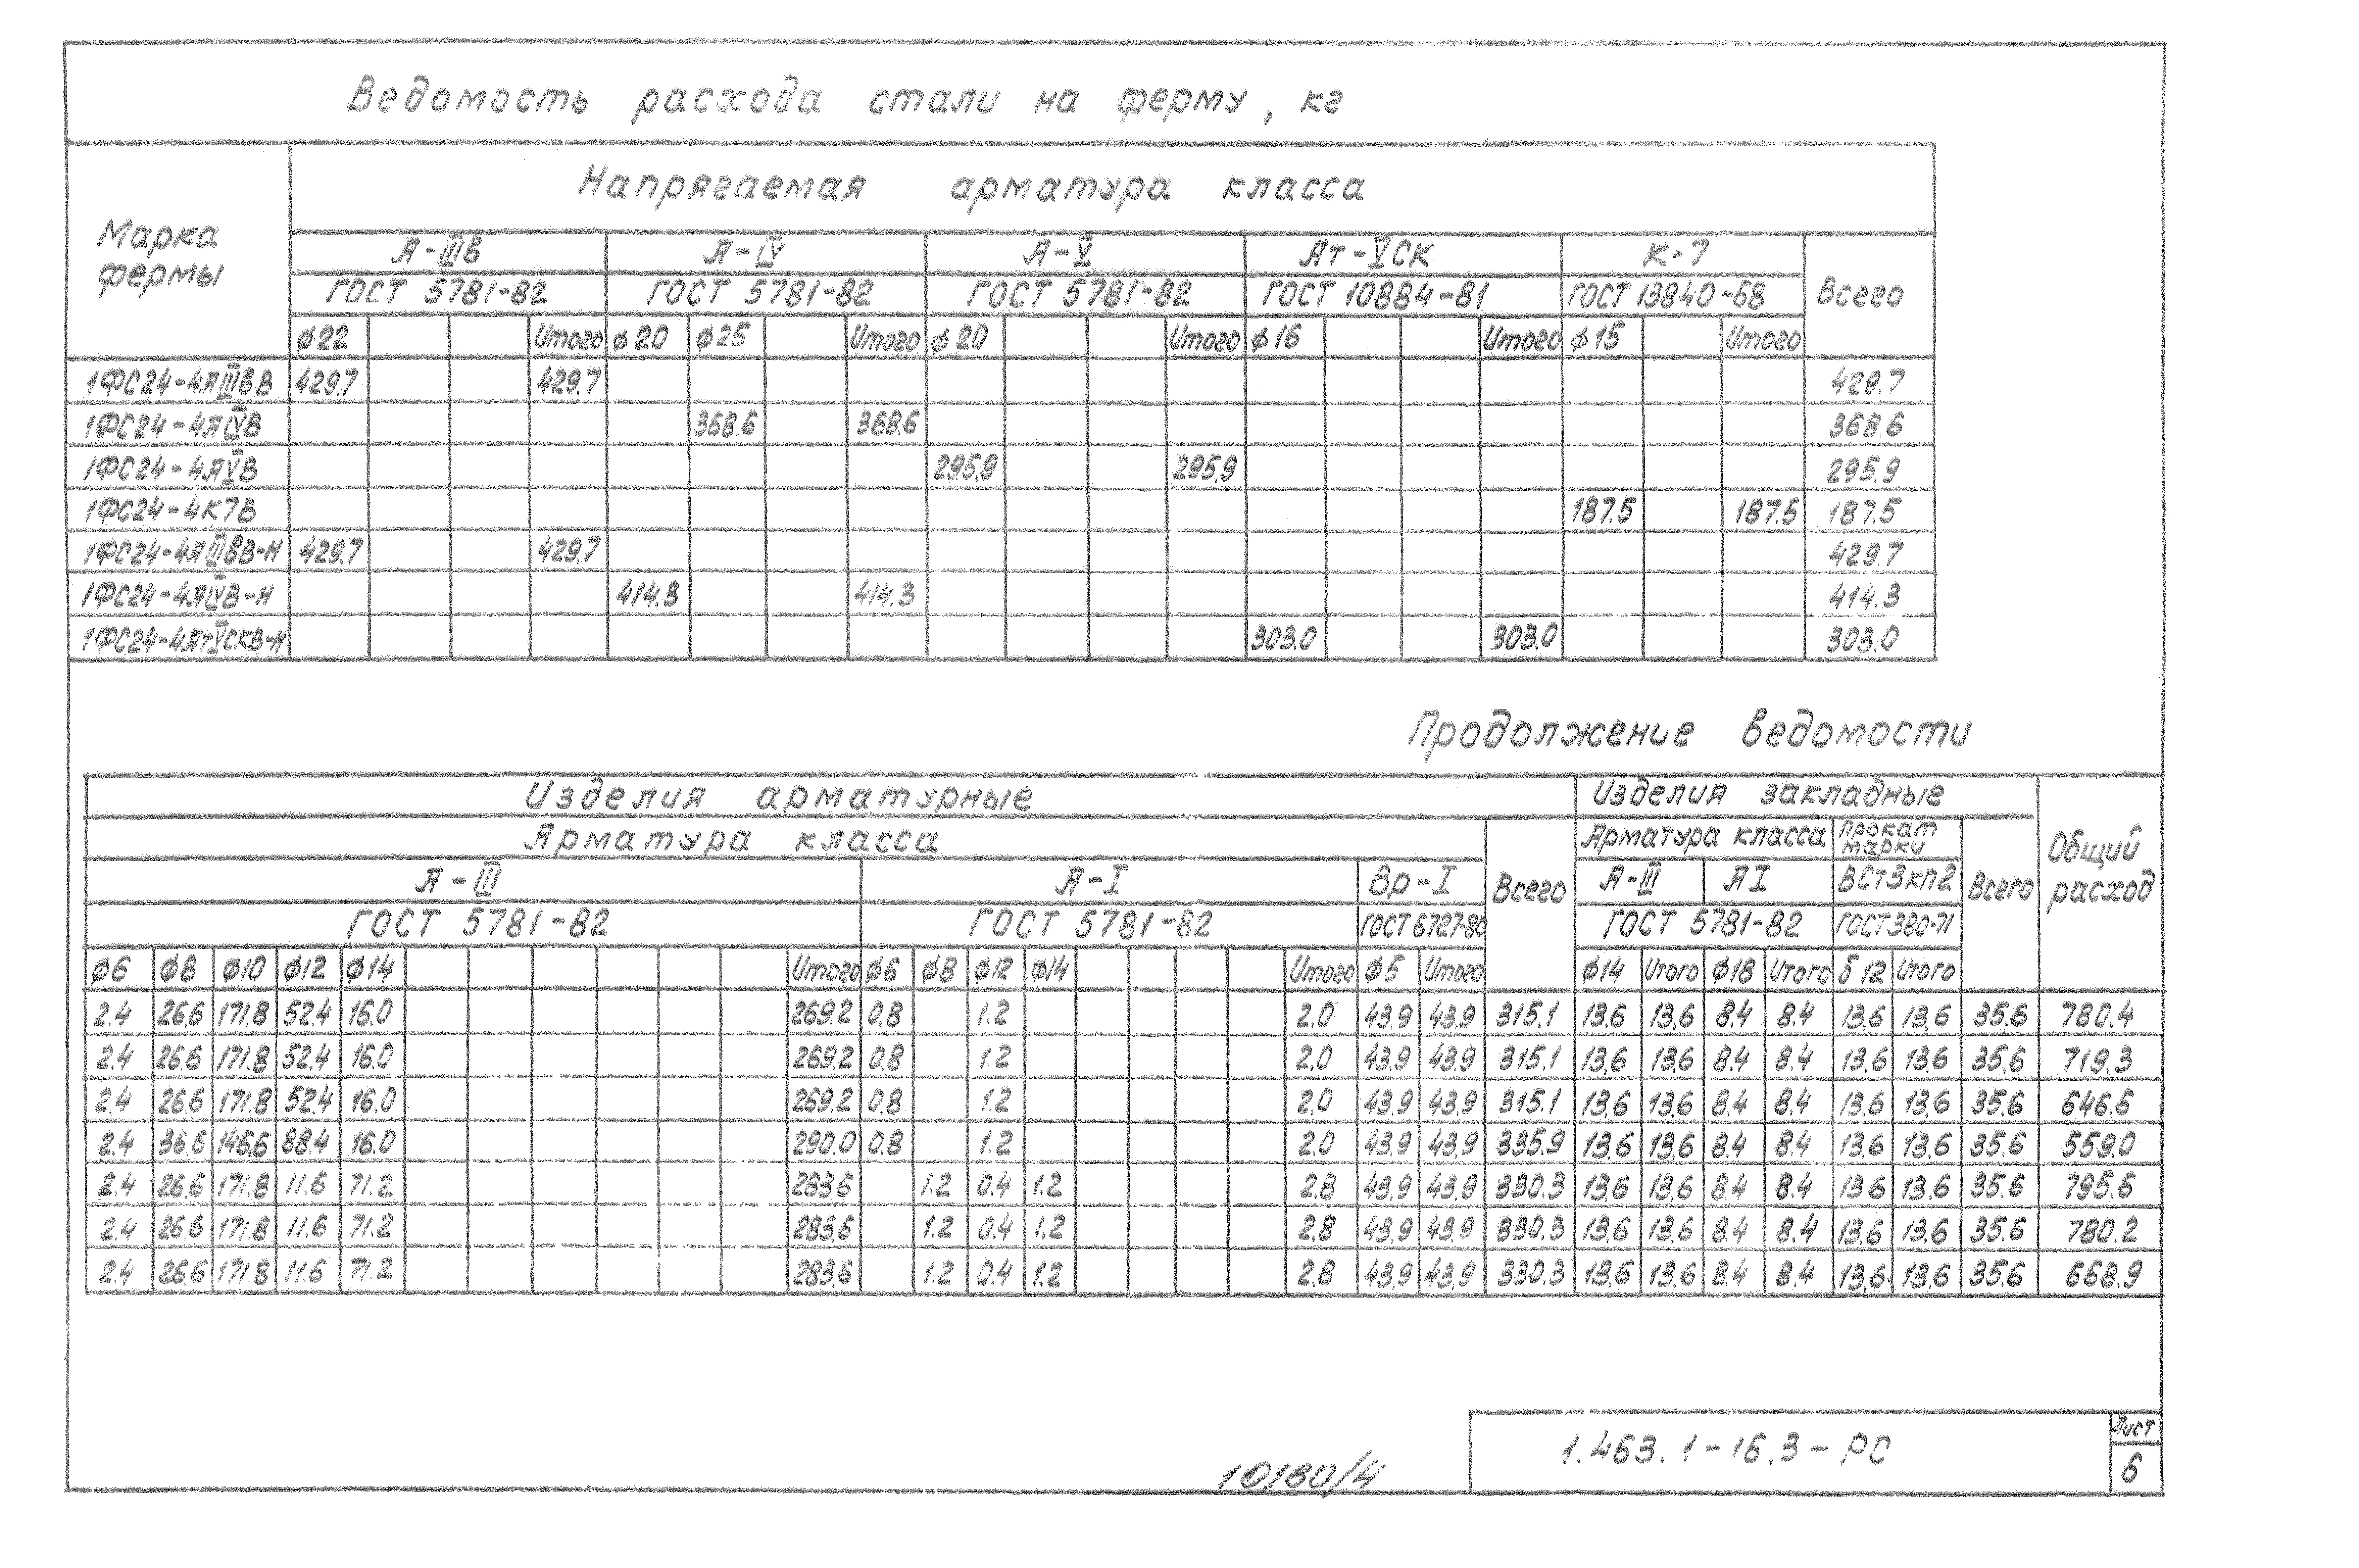 Ведомость расхода стали на ферму, кг
Марка фермы
Напрягаемая арматура класса
А-IIIв А-IV А-V Ат-VСК К-7 Всего
ГОСТ 5781-82 ГОСТ 5781-82 ГОСТ 5781-82 ГОСТ 10884-81 ГОСТ 13840-68
ф22 Итого ф20 ф25 Итого ф20 Итого ф16 Итого ф15 Итого
1ФС24-4АIIIвВ 429.7 429.7 429.7
1ФС24-4АIVВ 368.6 368.6 368.6
1ФС24-4АVВ 295.9 295.9 295.9
1ФС24-4К7В 187.5 187.5 187.5
1ФС24-4АIIIвВ-Н 429.7 429.7 429.7
1ФС24-4АIVВ-Н 414.3 414.3 414.3
1ФС24-4АтVСКВ-Н 303.0 303.0 303.0
Продолжение ведомости
Изделия арматурные Изделия закладные Общий расход
Арматура класса Всего Арматура класса Прокат марки Всего
А-III А-I Вр-I А-III АI ВСт3кп2
ГОСТ 5781-82 ГОСТ 5781-82 ГОСТ 6727-80 ГОСТ 5781-82 ГОСТ 380-71
ф6 ф8 ф10 ф12 ф14 Итого ф6 ф8 ф12 ф14 Итого ф5 Итого ф14 Итого ф18 Итого δ12 Итого
2.4 26.6 171.8 52.4 16.0 269.2 0.8 1.2 2.0 43.9 43.9 315.1 13.6 13.6 8.4 8.4 13.6 13.6 35.6 780.4
2.4 26.6 171.8 52.4 16.0 269.2 0.8 1.2 2.0 43.9 43.9 315.1 13.6 13.6 8.4 8.4 13.6 13.6 35.6 719.3
2.4 26.6 171.8 52.4 16.0 269.2 0.8 1.2 2.0 43.9 43.9 315.1 13.6 13.6 8.4 8.4 13.6 13.6 35.6 646.6
2.4 36.6 146.6 88.4 16.0 290.0 0.8 1.2 2.0 43.9 43.9 335.9 13.6 13.6 8.4 8.4 13.6 13.6 35.6 559.0
2.4 26.6 171.8 11.6 71.2 283.6 1.2 0.4 1.2 2.8 43.9 43.9 330.3 13.6 13.6 8.4 8.4 13.6 13.6 35.6 795.6
2.4 26.6 171.8 11.6 71.2 283.6 1.2 0.4 1.2 2.8 43.9 43.9 330.3 13.6 13.6 8.4 8.4 13.6 13.6 35.6 780.2
2.4 26.6 171.8 11.6 71.2 283.6 1.2 0.4 1.2 2.8 43.9 43.9 330.3 13.6 13.6 8.4 8.4 13.6 13.6 35.6 668.9
1.463.1-16.3-РС
Лист
6
10180/4